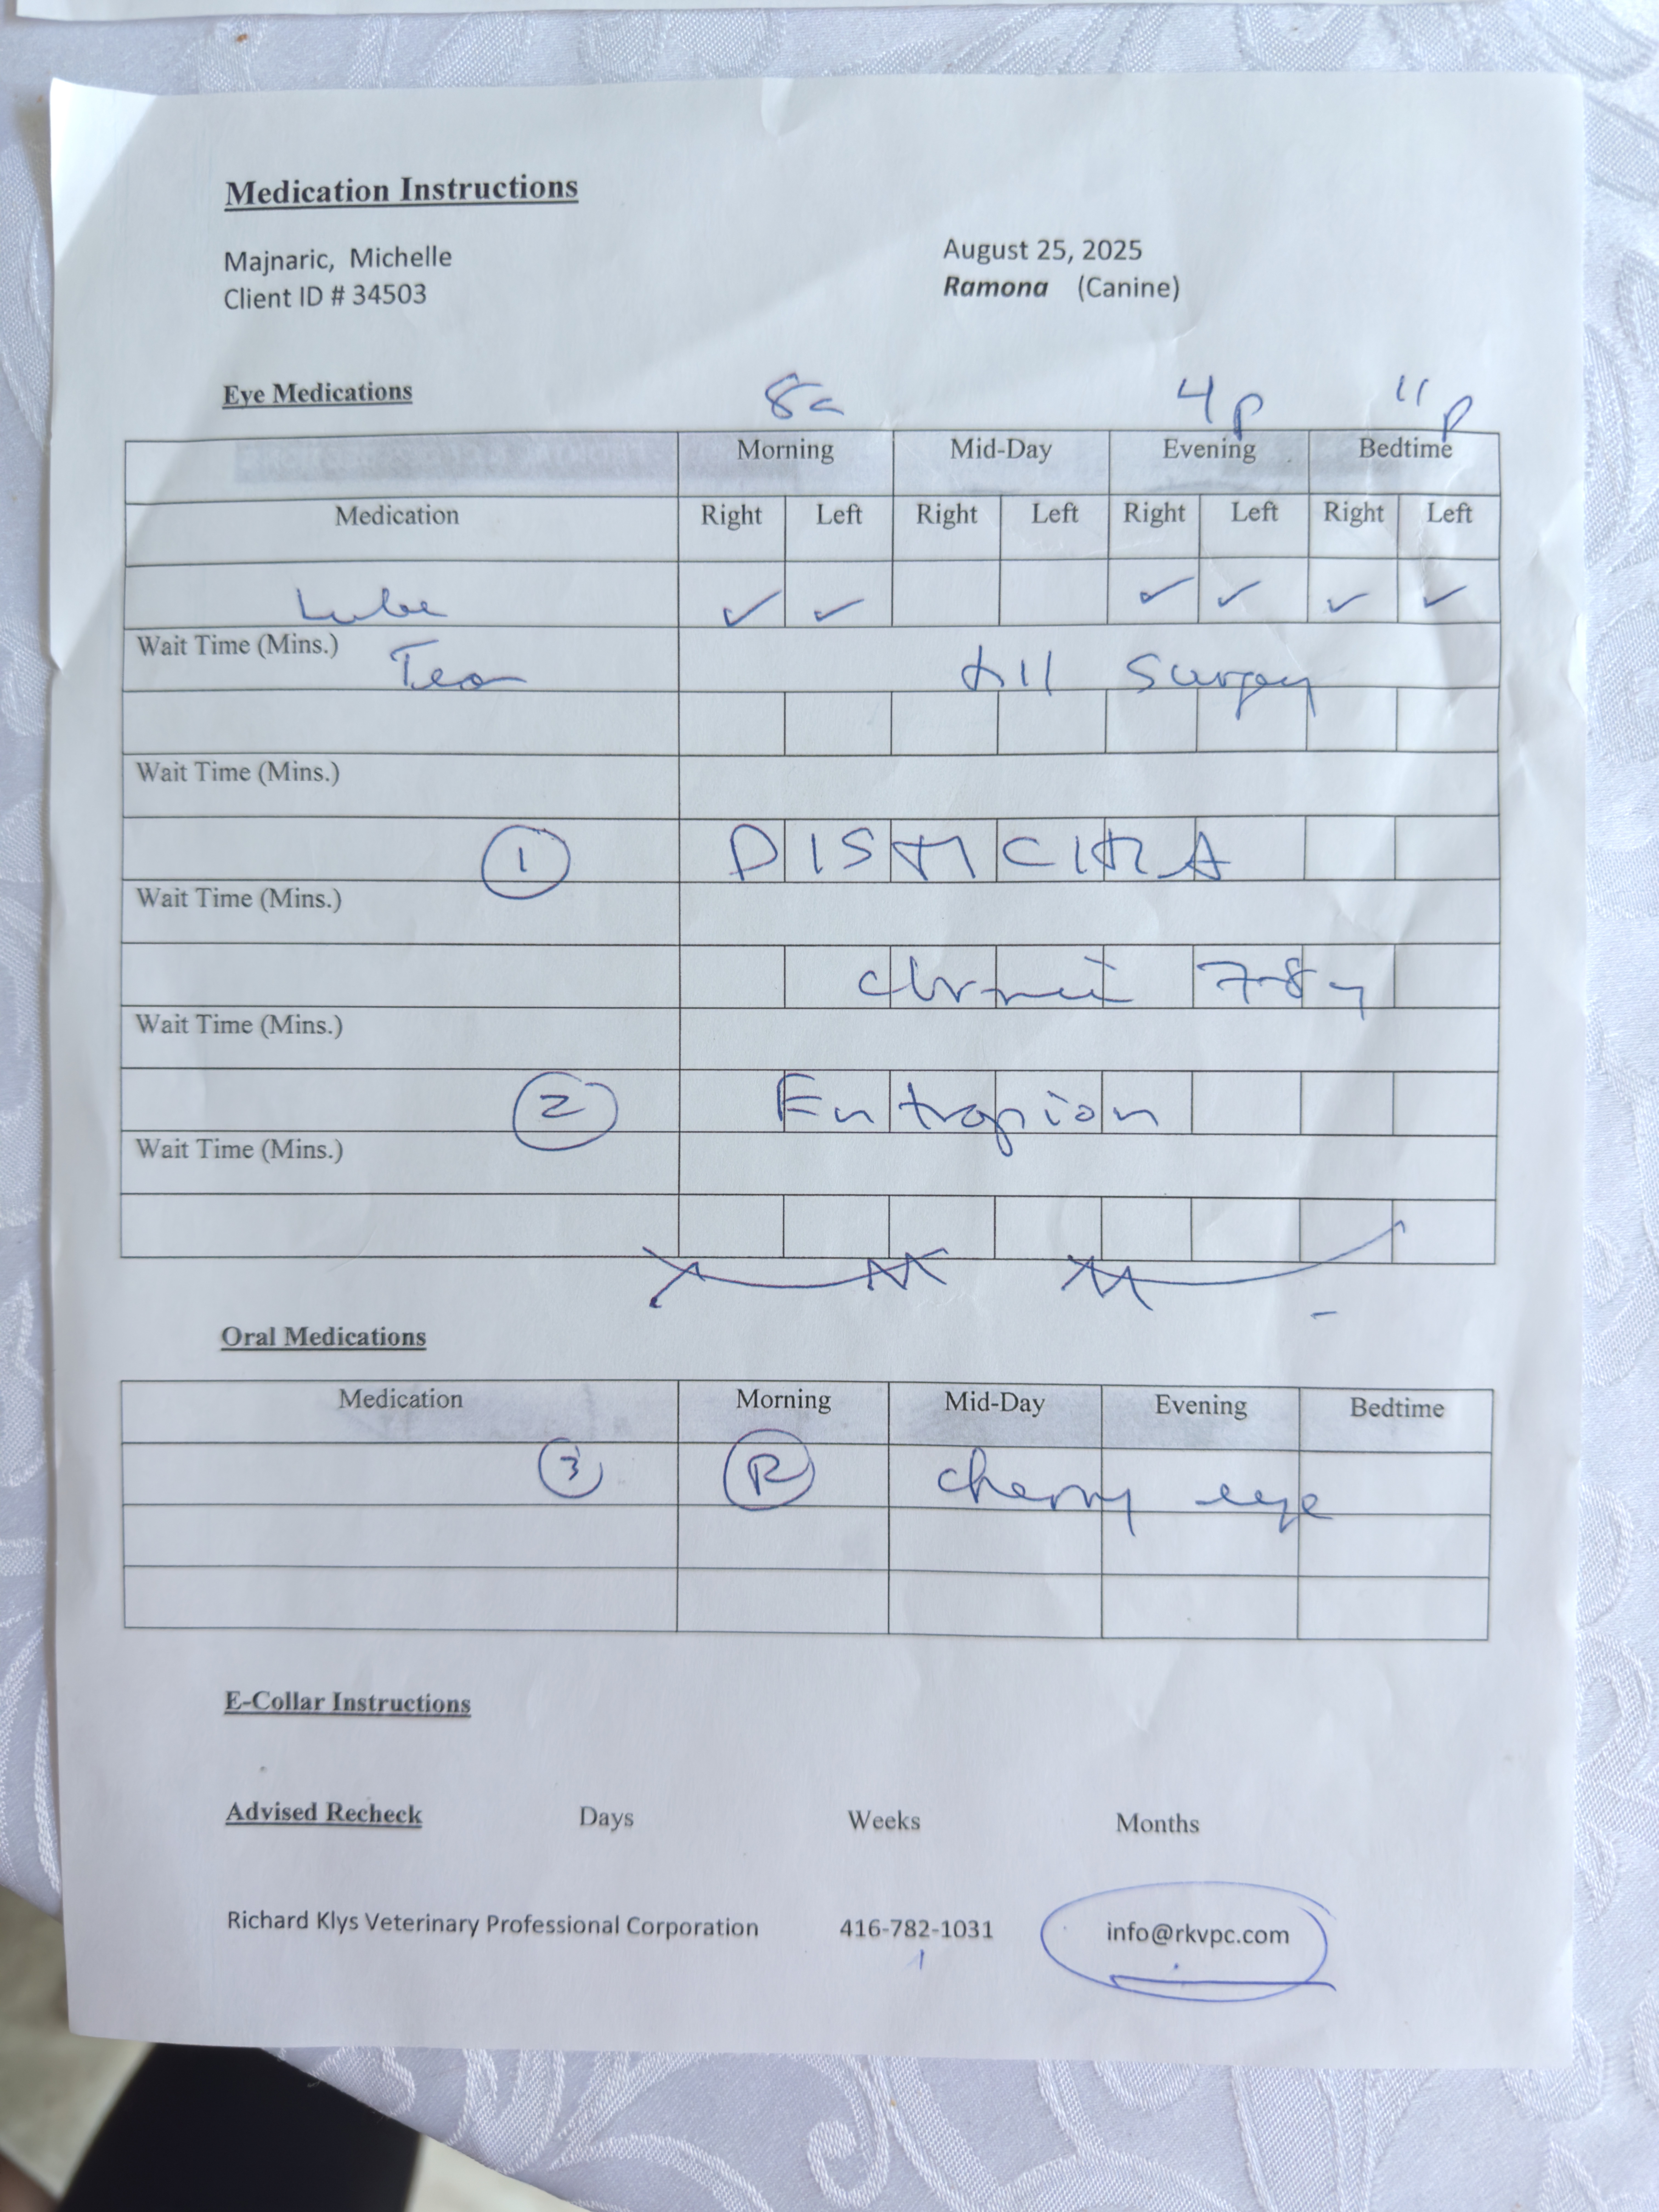 Medication Instructions
Majnaric, Michelle August 25, 2025
Client ID # 34503 Ramona (Canine)
Eye Medications 8a 4p 11p
Morning Mid-Day Evening Bedtime
Medication Right Left Right Left Right Left Right Left
Lube ✓ ✓ ✓ ✓ ✓ ✓
Wait Time (Mins.) till surgery
Wait Time (Mins.)
1 DISTICHIA
Wait Time (Mins.)
chronic 7-8y
Wait Time (Mins.)
2 Entropion
Wait Time (Mins.)
Oral Medications
Medication Morning Mid-Day Evening Bedtime
3 R cherry eye
E-Collar Instructions
Advised Recheck Days Weeks Months
Richard Klys Veterinary Professional Corporation 416-782-1031 info@rkvpc.com